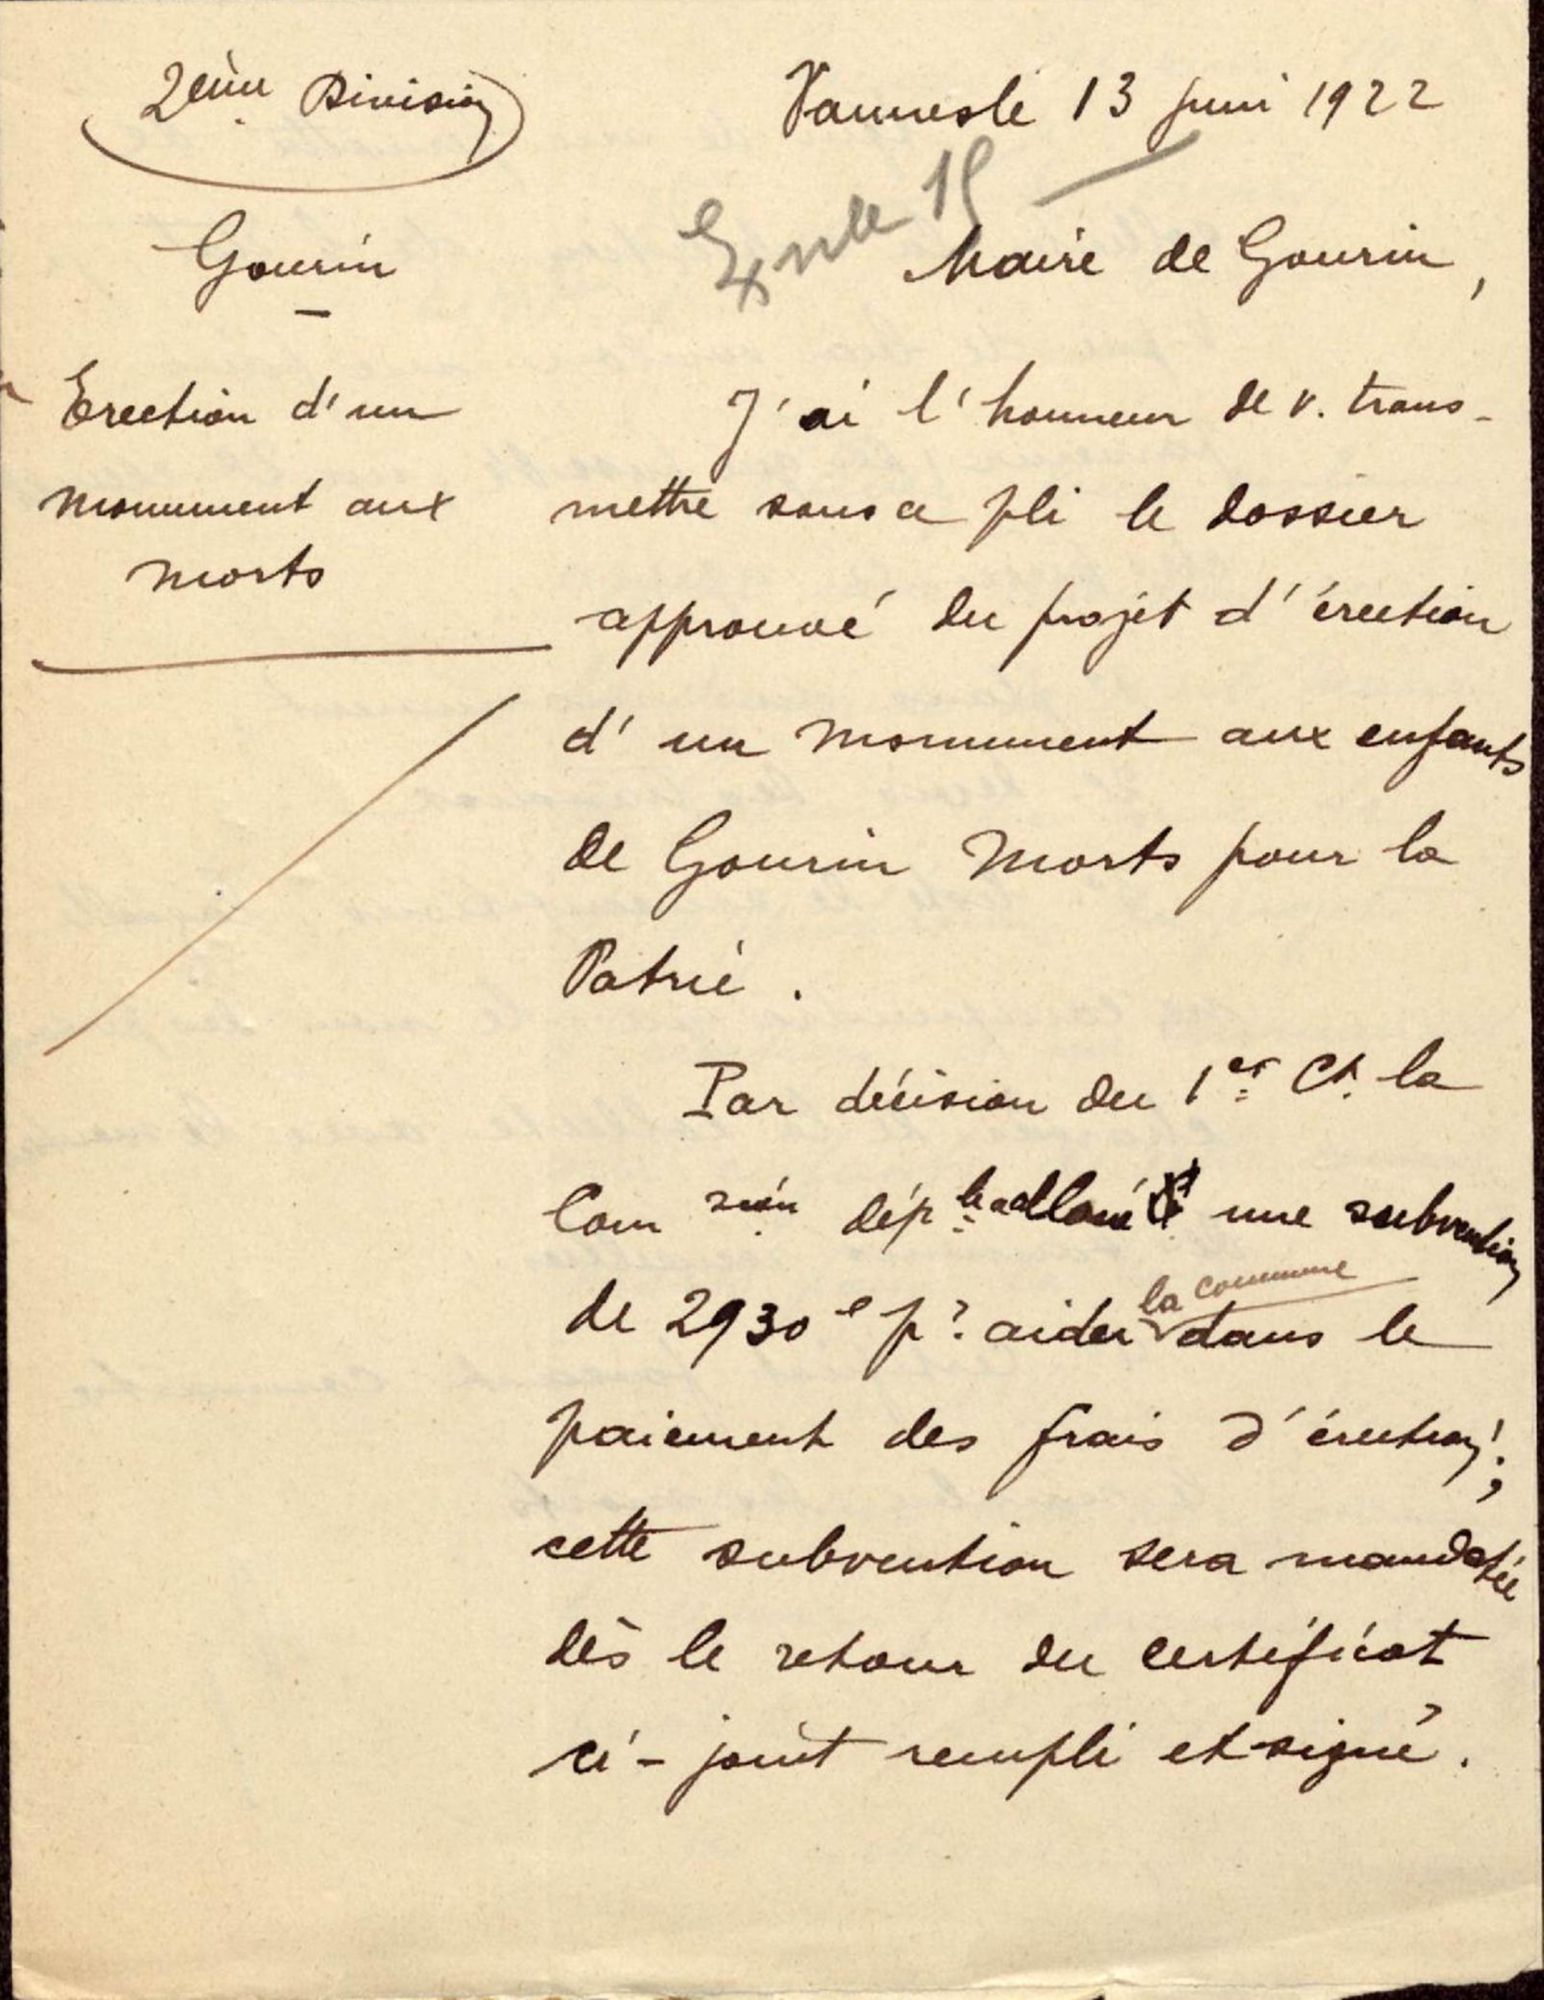 2ème Division
Vannes le 13 juin 1922
Exp le 15
Gourin
Maire de Gourin,
Erection d'un
monument aux
morts
J'ai l'honneur de v. trans-
mettre sous ce pli le dossier
approuvé du projet d'érection
d'un monument aux enfants
de Gourin Morts pour la
Patrie.
Par décision du 1er Ct. la
Com sion dép le a alloué une subvention
de 2930 f pr. aider la commune dans le
paiement des frais d'érection;
cette subvention sera mandatée
dès le retour du certificat
ci-joint rempli et signé.